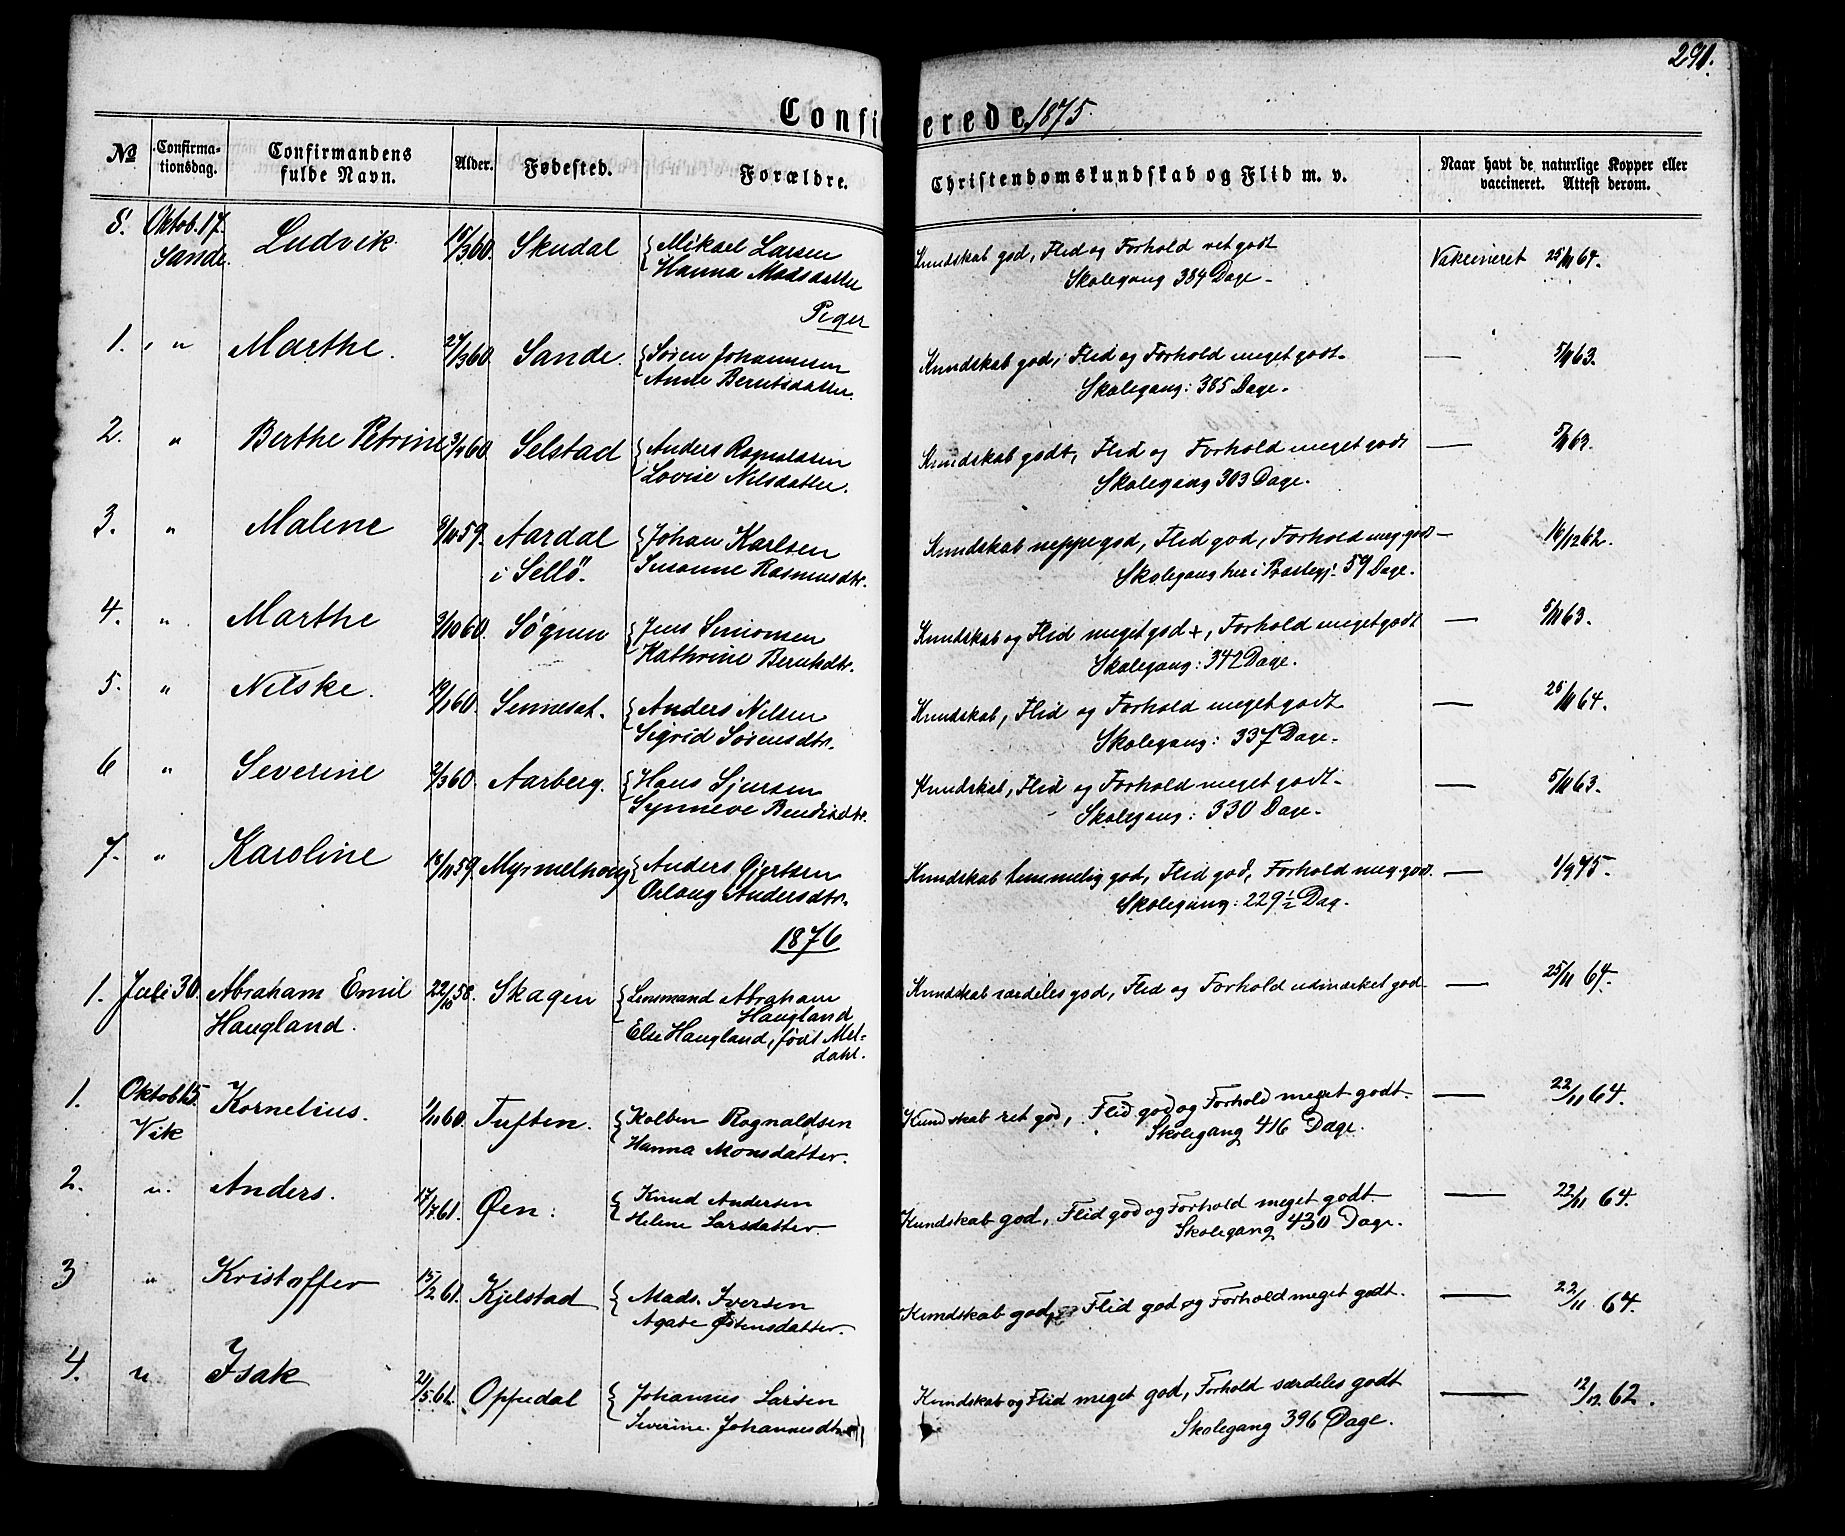 291.
Confirmerede 1875.
№ Confirmationsdag. Confirmandens fulde Navn. Alder. Fødested. Forældre. Christendomskundskab og Flid m. v. Naar havt de naturlige Kopper eller vaccineret. Attest derom.
8. Oktob. 17. Ludvik 60. Skudal { Mikael Larsen Kundskab god, Flid og Forhold ret godt Vakcineret 25/11 64.
Sande. Hanna Madsdatter Skolegang 384 Dage.
Piger
1. " " Marthe. 27/3 60. Sande. { Søren Johannesen Kundskab god, Flid og Forhold meget godt. — 5/11 63.
Anne Berntsdatter. Skolegang: 385 Dage.
2. " Berthe Petrine 60 Selstad { Anders Rognaldsen Kundskab godt, Flid og Forhold meget godt — 5/11 63.
Lovise Nilsdatter. Skolegang 303 Dage.
3. " Malene 9/11 59. Aardal { Johan Karlsen Kundskab neppe god, Flid god, Forhold meg. god — 16/12 62.
i Sellö. Susanne Rasmusdtr. Skolegang her i Præstegj. 59 Dage.
4. " Marthe 3/10 60. Søgnen { Jens Simonsen Kundskab og Flid meget god +, Forhold meget godt — 5/11 63.
Kathrine Berntsdtr. Skolegang: 342 Dage.
5. " Nilske. 19/1 60. Sennesæt. { Anders Nilsen Kundskab, Flid og Forhold meget godt — 25/11 64.
Sigrid Sørensdtr. Skolegang: 337 Dage.
6 " Severine 2/3 60. Aarberg. { Hans Sjursen Kundskab, Flid og Forhold meget godt. — 5/11 63.
Synneve Bendixdtr. Skolegang: 330 Dage.
7. " Karoline 18/11 59. Myrmelhoug { Anders Gjertsen Kundskab temmelig god, Flid god, Forhold meg. god. — 1/9 75.
Orloug Andersdtr. Skolegang: 229 1/2 Dag.
1876
1. Juli 30. Abraham Emil 22/10 58. Skagen { Lensmand Abraham Kundskab særdeles god, Flid og Forhold udmærket god. — 25/11 64.
Haugland. Haugland
Else Haugland, født Mel-
dahl.
1. Oktob 15. Kornelius. 1/11 60. Tuften. { Kolben Rognaldsen Kundskab ret god, Flid god og Forhold meget godt. — 22/11 64.
Vik Hanna Monsdatter. Skolegang 416 Dage.
2. " Anders. 17/7 61. Øen. { Knud Andersen Kundskab god, Flid god og Forhold meget godt — 22/11 64.
Helene Larsdatter. Skolegang 430 Dage.
3 " Kristoffer 15/2 61. Kjelstad { Mads. Iversen Kundskab god, Flid god og Forhold meget godt. — 22/11 64.
Agate Østensdatter.
4. " Isak 21/5 61. Oppedal { Johannes Larsen Kundskab og Flid meget god, Forhold særdeles godt — 12/12 62.
Severine. Johannesdtr. Skolegang 396 Dage.